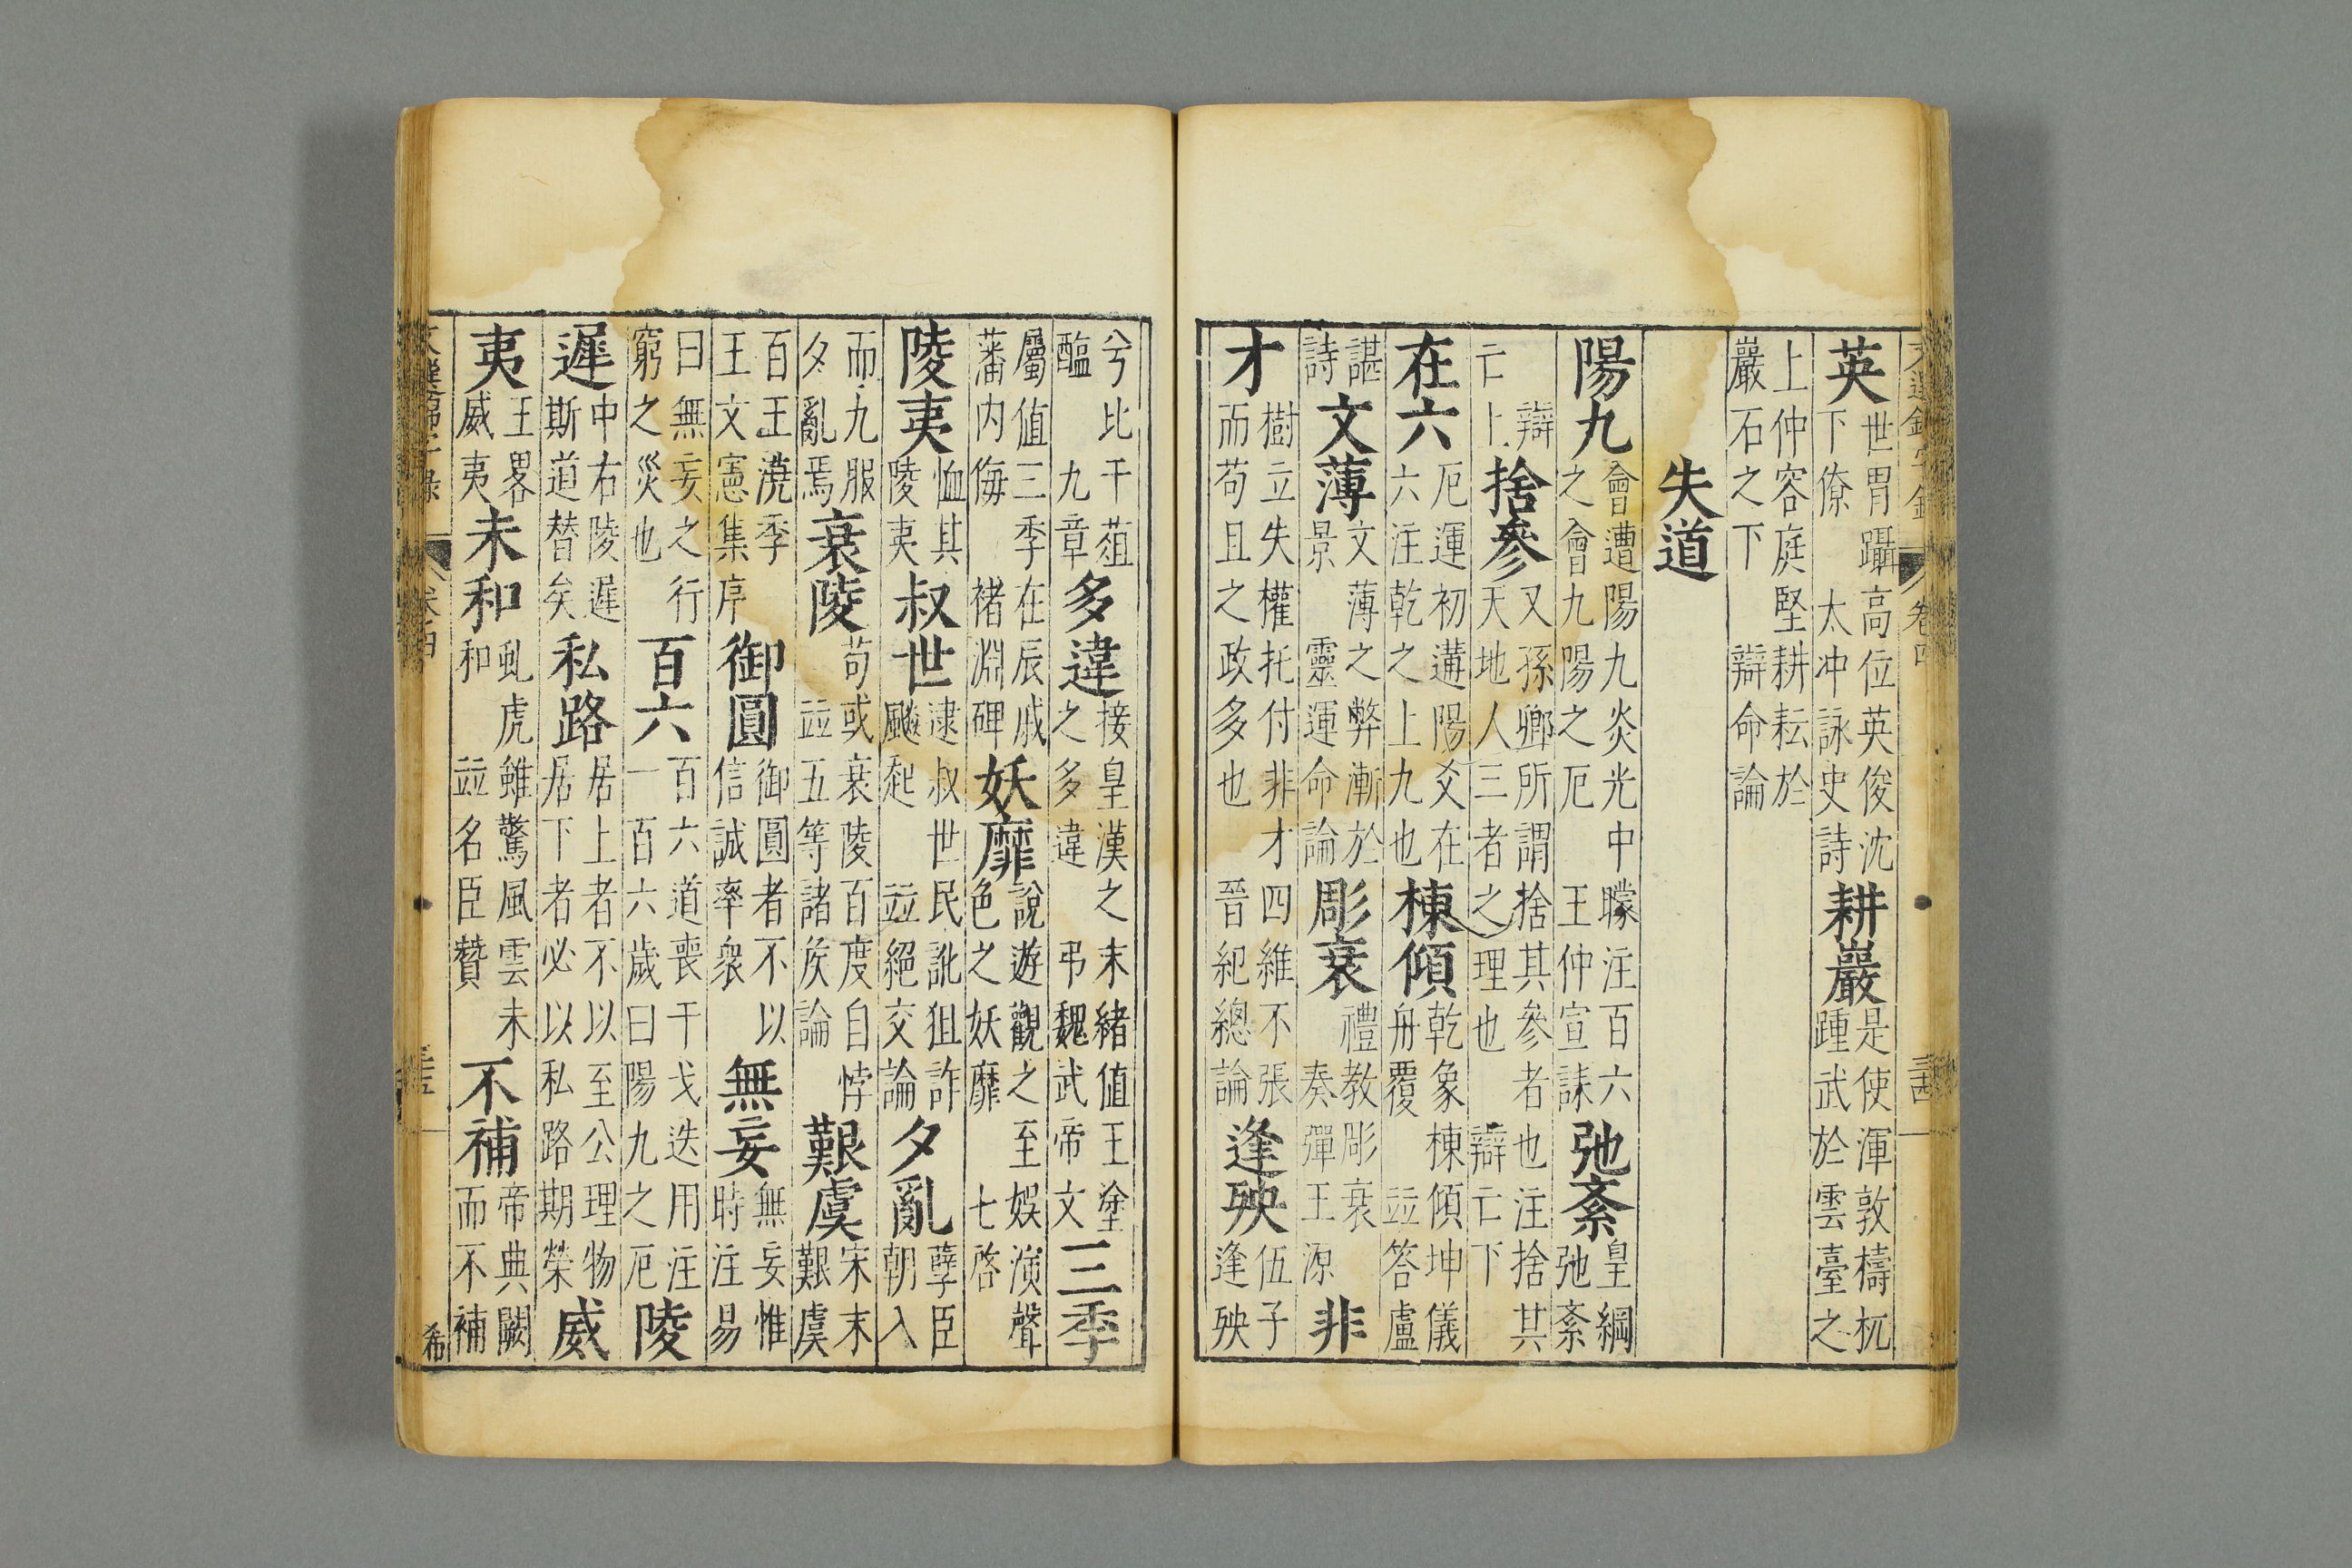 文選錦字錄 卷四 三十四
英世冑躡高位英俊沈下僚 太冲詠史詩耕巖是使渾敦檮杌踵武於雲臺之
上仲容庭堅耕耘於巖石之下 辯命論
失道
陽九會遭陽九炎光中矇注百六之會九陽之厄 王仲宣誄弛紊皇綱弛紊
辯亡上捨參又孫卿所謂捨其參者也注捨其天地人三者之理也 辯亡下
在六厄運初遘陽爻在六注乾之上九也棟傾乾象棟傾坤儀舟覆 並答盧
諶詩文薄文薄之弊漸於景 靈運命論彫衰禮教彫衰 奏彈王源非
才樹立失權托付非才四維不張而苟且之政多也 晉紀總論逢殃伍子逢殃
兮比干葅醢 九章多違接皇漢之末緒值王塗之多違 弔魏武帝文三季
屬值三季在辰戚藩内侮 褚淵碑妖靡說遊觀之至娛演聲色之妖靡 七啓
陵夷恤其陵夷叔世逮叔世民訛狙詐飈起 並絕交論夕亂孽臣朝入
而九服夕亂焉衰陵苟或衰陵百度自悖 並五等諸侯論艱虞宋末艱虞
百王澆季王文憲集序御圓御圓者不以信誠率衆無妄無妄惟時注易
曰無妄之行窮之災也百六百六道喪干戈迭用注一百六歲曰陽九之厄陵
遲中右陵遲斯道替矣私路居上者不以至公理物居下者必以私路期榮威
夷王畧威夷未和虬虎雖驚風雲未和 並名臣贊不補帝典闕而不補
卷四 三十五 希